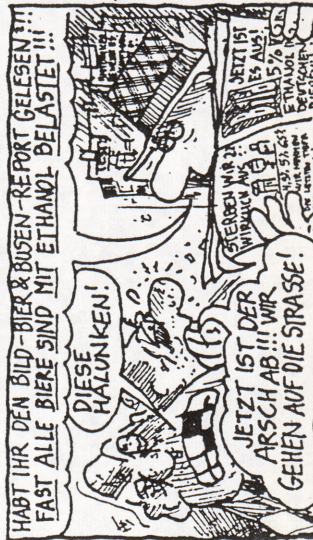 HABT IHR DEN BILD-BIER & BUSEN-REPORT GELESEN?!!
FAST ALLE BIERE SIND MIT ETHANOL BELASTET!!!
DIESE
HALUNKEN!
JETZT IST DER
ARSCH AB!!!! WIR
GEHEN AUF DIE STRASSE!
STERBEN WIR
WIRKLICH AUS?
JETZT IST
ES AUS!
5%
ETHANOL IN
DEUTSCHEN